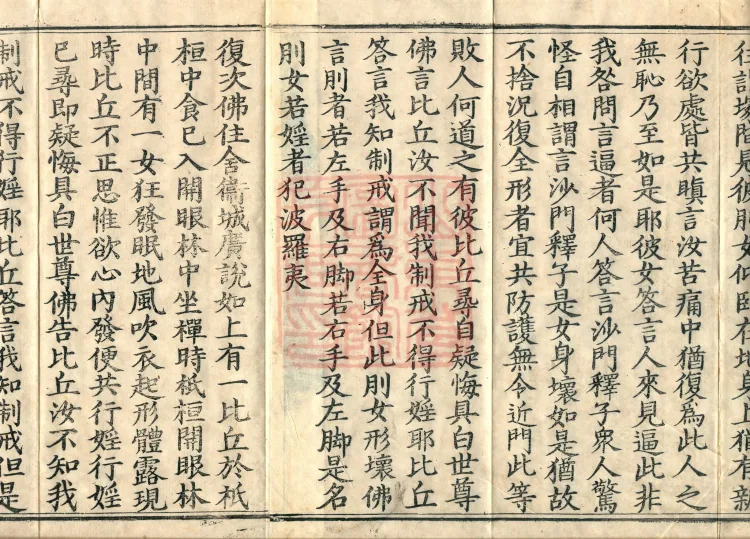 往詣塚間見彼刖女仰臥在地身上猶有新
行欲處皆共瞋言汝苦痛中猶復爲此人之
無恥乃至如是耶彼女答言人來見逼此非
我咎問言逼者何人答言沙門釋子衆人驚
怪自相謂言沙門釋子是女身壞如是猶故
不捨況復全形者宜共防護無令近門此等
敗人何道之有彼比丘尋自疑悔具白世尊
佛言比丘汝不聞我制戒不得行婬耶比丘
答言我知制戒謂爲全身但此刖女形壞佛
言刖者若左手及右脚若右手及左脚是名
刖女若婬者犯波羅夷
復次佛住舍衞城廣說如上有一比丘於祇
桓中食已入開眼林中坐禪時祇桓開眼林
中間有一女狂發眠地風吹衣起形體露現
時比丘不正思惟欲心內發便共行婬行婬
已尋即疑悔具白世尊佛告比丘汝不知我
制戒不得行婬耶比丘答言我知制戒但是